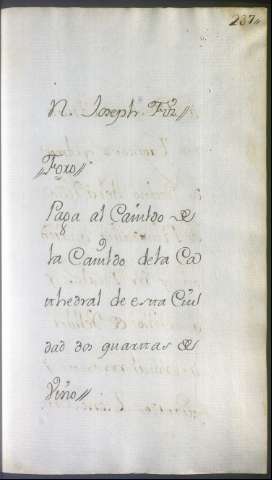 237,,
N. Joseph. Frz//
//Foro//
Paga al Cavildo de
la Cavildo de la Ca
thedral de esta Ciu
dad dos quartas de
Vino//